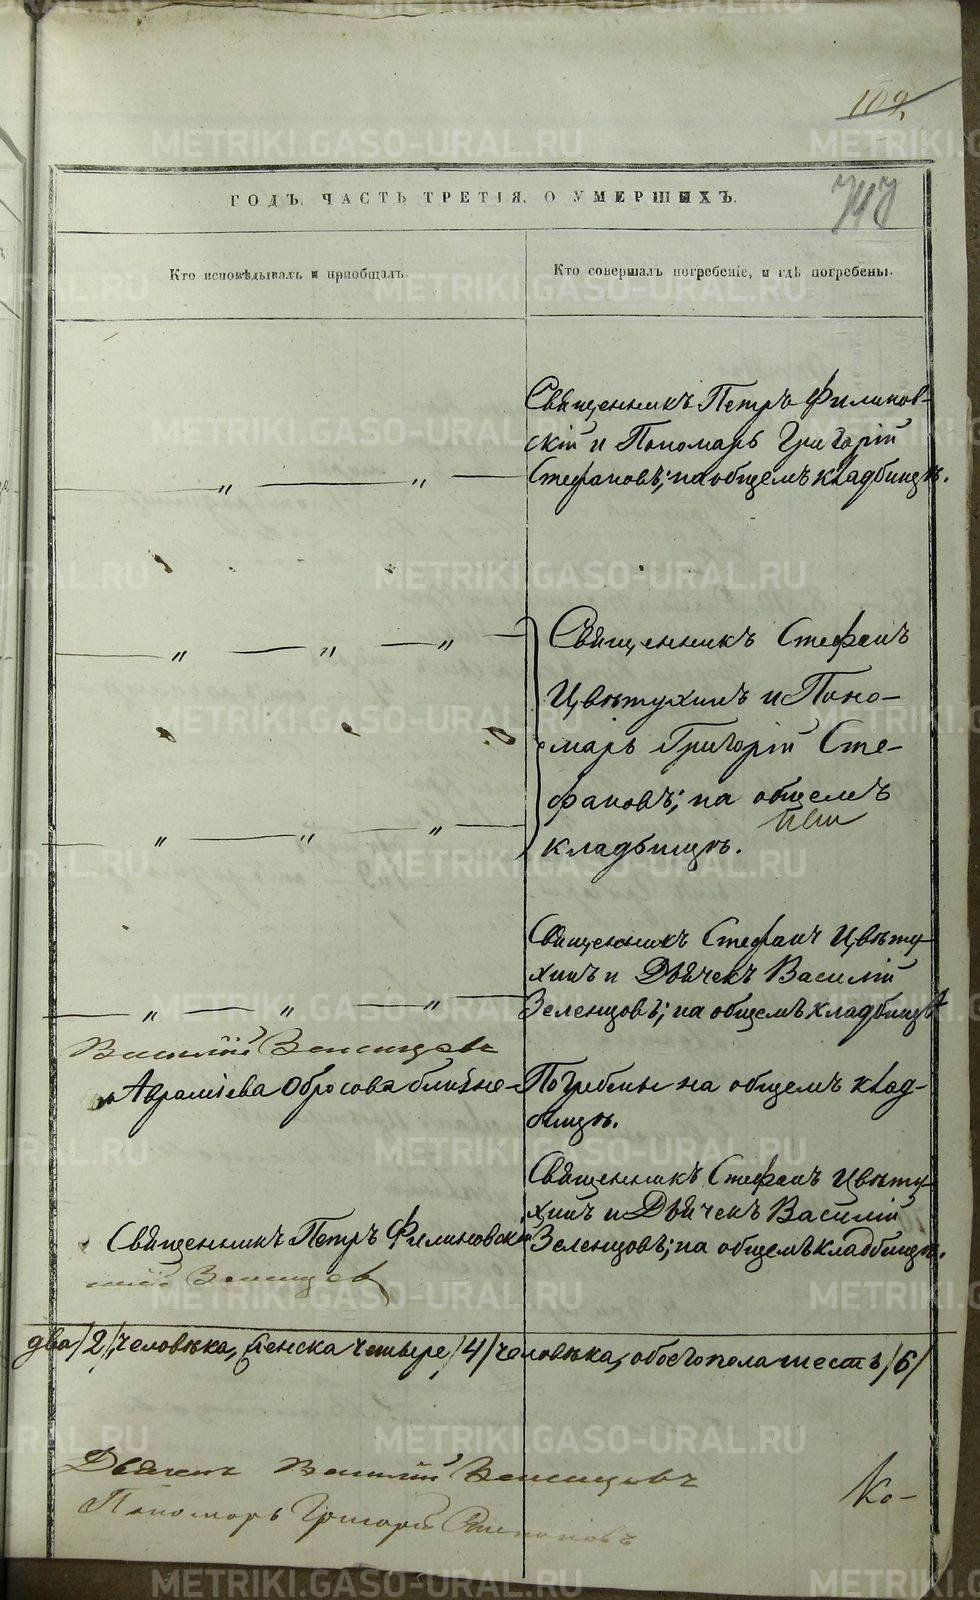 109,
ГОДЪ, ЧАСТЬ ТРЕТІЯ, О УМЕРШИХЪ.
Кто исповѣдывалъ и пріобщалъ.
Кто совершалъ погребеніе, и гдѣ погребены.
Священникъ Петръ Филинов-
скій и Пономарь Григорій
Стефановъ; на общемъ кладбищѣ.
Священникъ Стефанъ
Цвѣтухинъ и Поно-
марь Григорій Сте-
фановъ; на общемъ
кладбищѣ.
Священникъ Стефанъ Цвѣту-
хинъ и Дьячекъ Василій
Зеленцовъ; на общемъ кладбищѣ
Василій Зеленцовъ
Авраміева Обросова ближне-
Погребены на общемъ клад-
бищѣ.
Священникъ Стефанъ Цвѣту-
хинъ и Дьячекъ Василій
Зеленцовъ; на общемъ кладбищѣ.
Священникъ Петръ Филиновскій
Зеленцовъ
два /2/ человѣка, женска четыре /4/ человѣка, обоего пола шесть /6/
Дьячекъ Василій Зеленцовъ
Пономарь Григорій Стефановъ
Ко-
METRIKI.GASO-URAL.RU